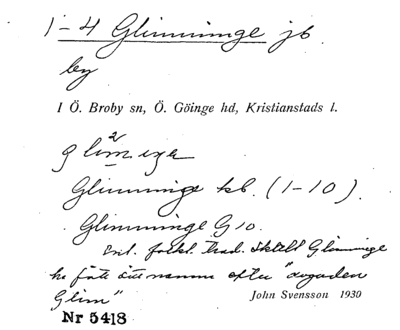 1-4 Glimminge jb.
by
I Ö. Broby sn, Ö. Göinge hd, Kristianstads l.
Glimminge kb. (1-10).
Glimminge G 10.
Enl. folkl. trad. skall Glimminge
ha fått sitt namn efter "
Glim"
John Svensson 1930
Nr 5418